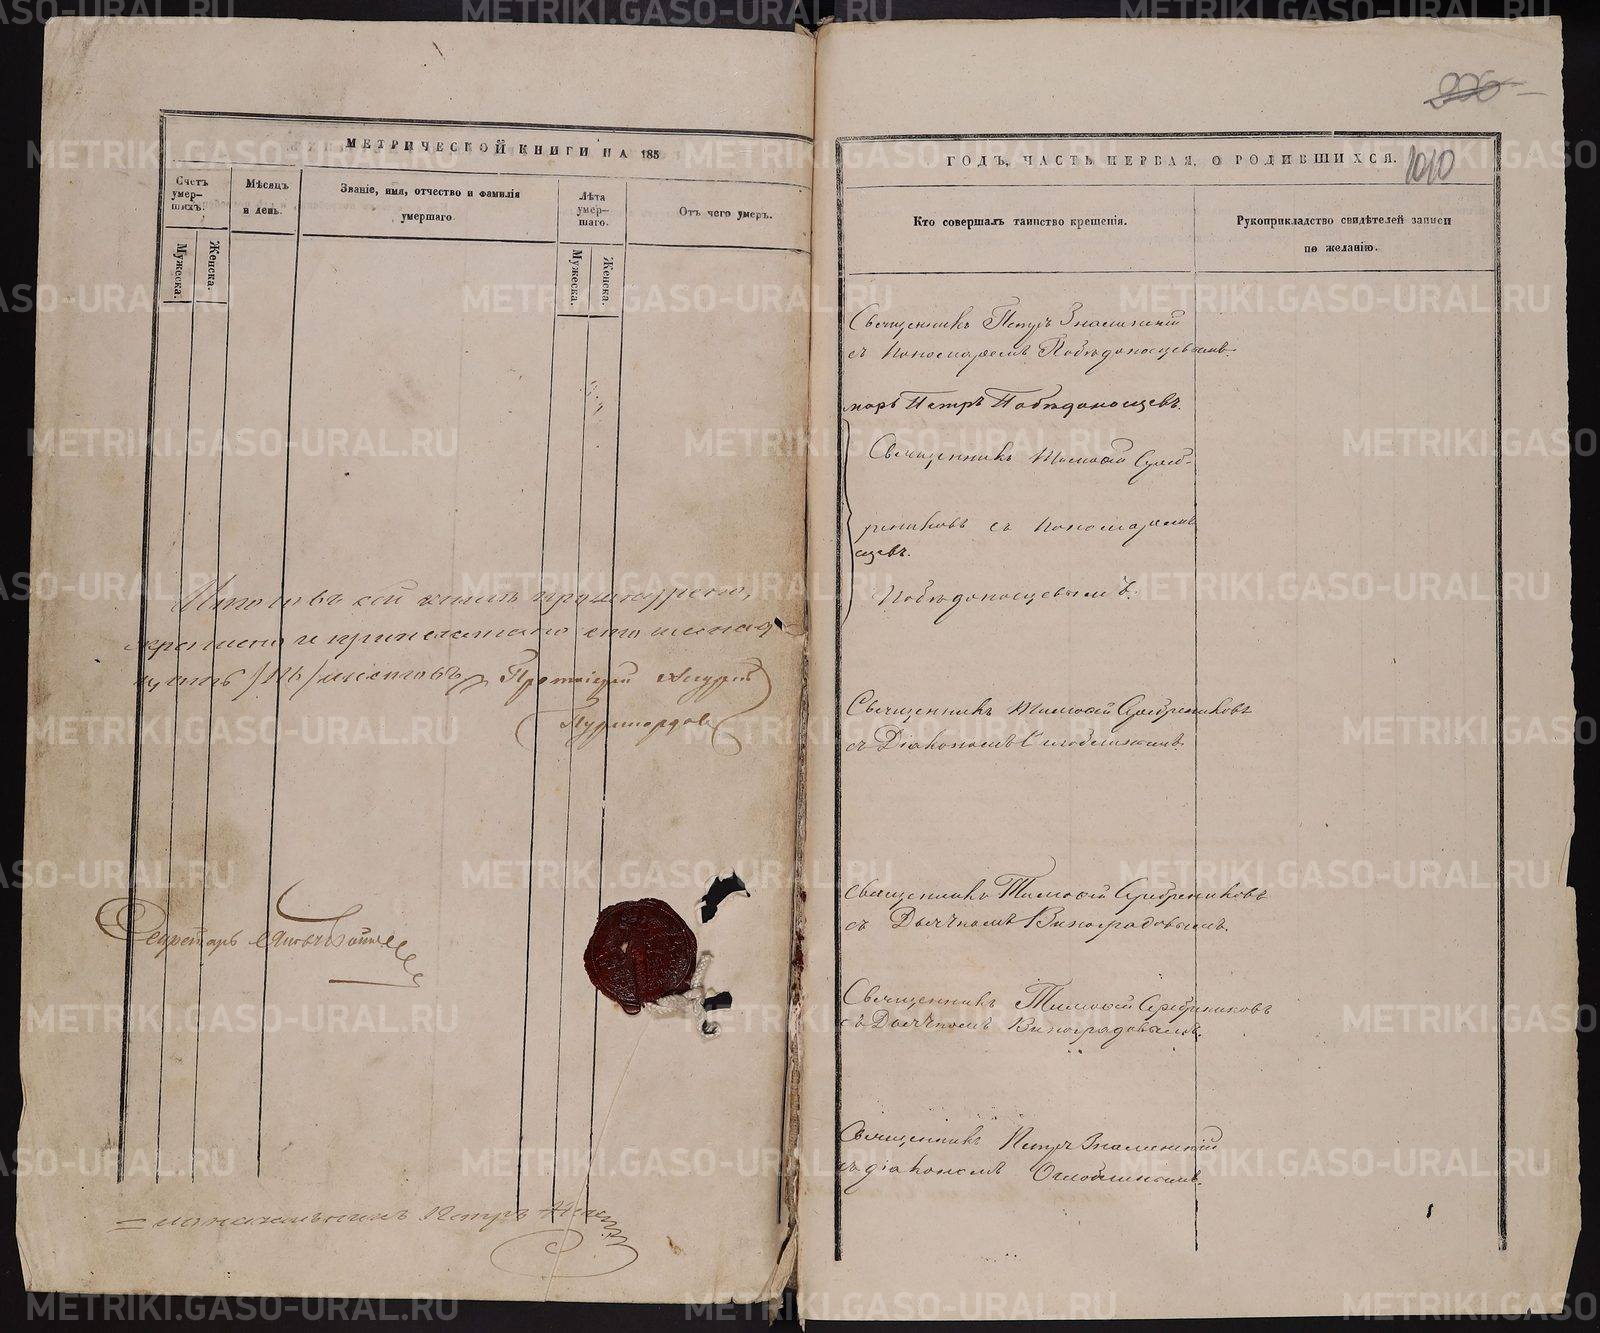 МЕТРИЧЕСКОЙ КНИГИ НА 185
Счетъ умер-шихъ.
Мужеска.
Женска.
Мѣсяцъ и день.
Званіе, имя, отчество и фамилія умершаго.
Лѣта умер-шаго.
Мужеска.
Женска.
Отъ чего умеръ.
Итого въ сей книгѣ прошнурено,
скреплено и припечатано сто
листовъ Протоіерей
Секретарь
Петръ
206
ГОДЪ, ЧАСТЬ ПЕРВАЯ, О РОДИВШИХСЯ.
1010
Кто совершалъ таинство крещенія.
Рукоприкладство свидѣтелей записи по желанію.
Священникъ Петръ Знаменскій
съ Пономаремъ Побѣдоносцевымъ
марь Петръ Побѣдоносцевъ.
Священникъ Тимофей Среб-
рениковъ съ Пономаремъ
сцевъ.
Побѣдоносцевымъ.
Священникъ Тимофей Сребрениковъ
съ Діакономъ Оглоблинымъ
Священникъ Тимофей Сребрениковъ
съ Дьячкомъ Виноградовымъ.
Священникъ Тимофей Серебрениковъ
съ Дьячкомъ Виноградовымъ.
Священникъ Петръ Знаменскій
съ діакономъ Оглоблинымъ.
METRIKI.GASO-URAL.RU